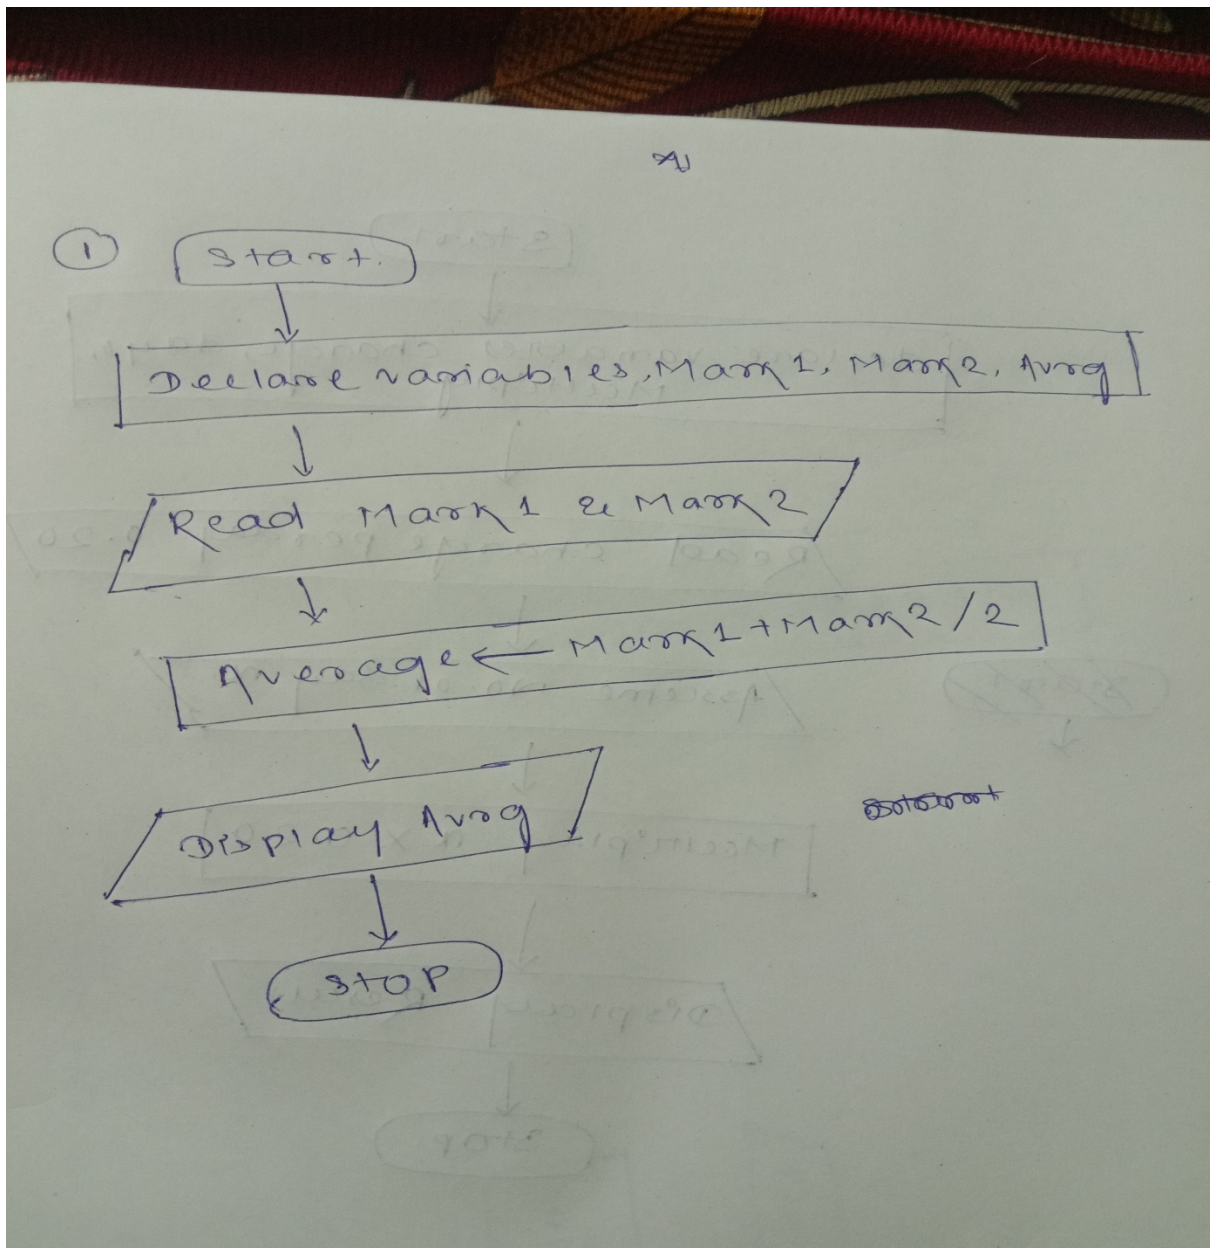 1
Start.
Declare variables, Mark1, Mark2, Avrg
Read Mark1 & Mark2
Average ← Mark1+Mark2/2
Display Avrg
Stop